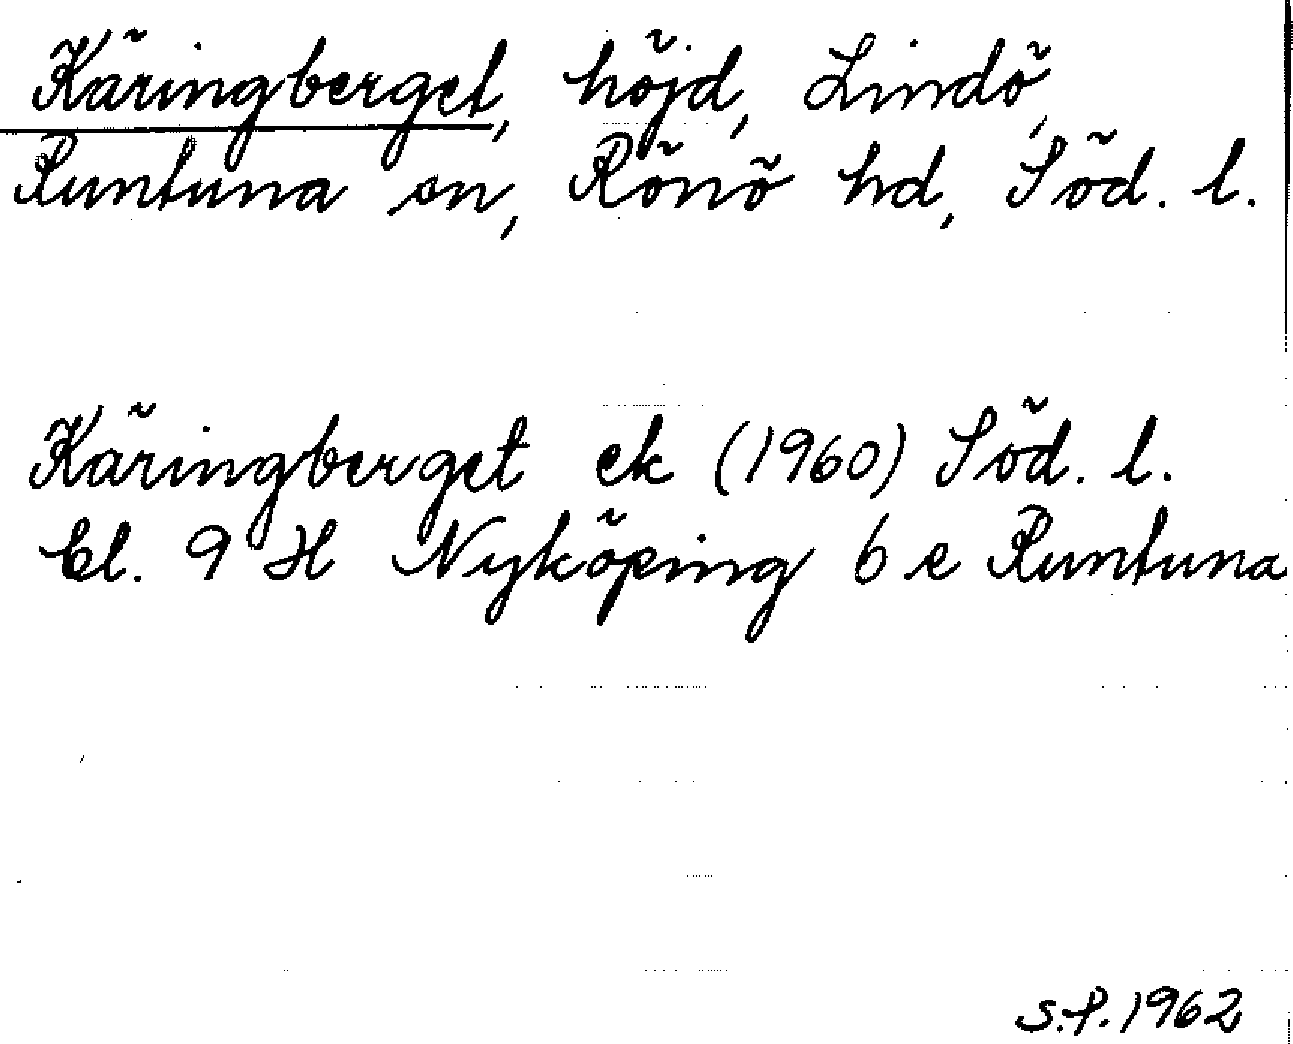 Käringberget, höjd, Lindö,
Runtuna sn, Rönö hd, Söd. l.
Käringberget ek (1960) Söd. l.
bl. 9 H Nyköping 6 e Runtuna
S.P. 1962